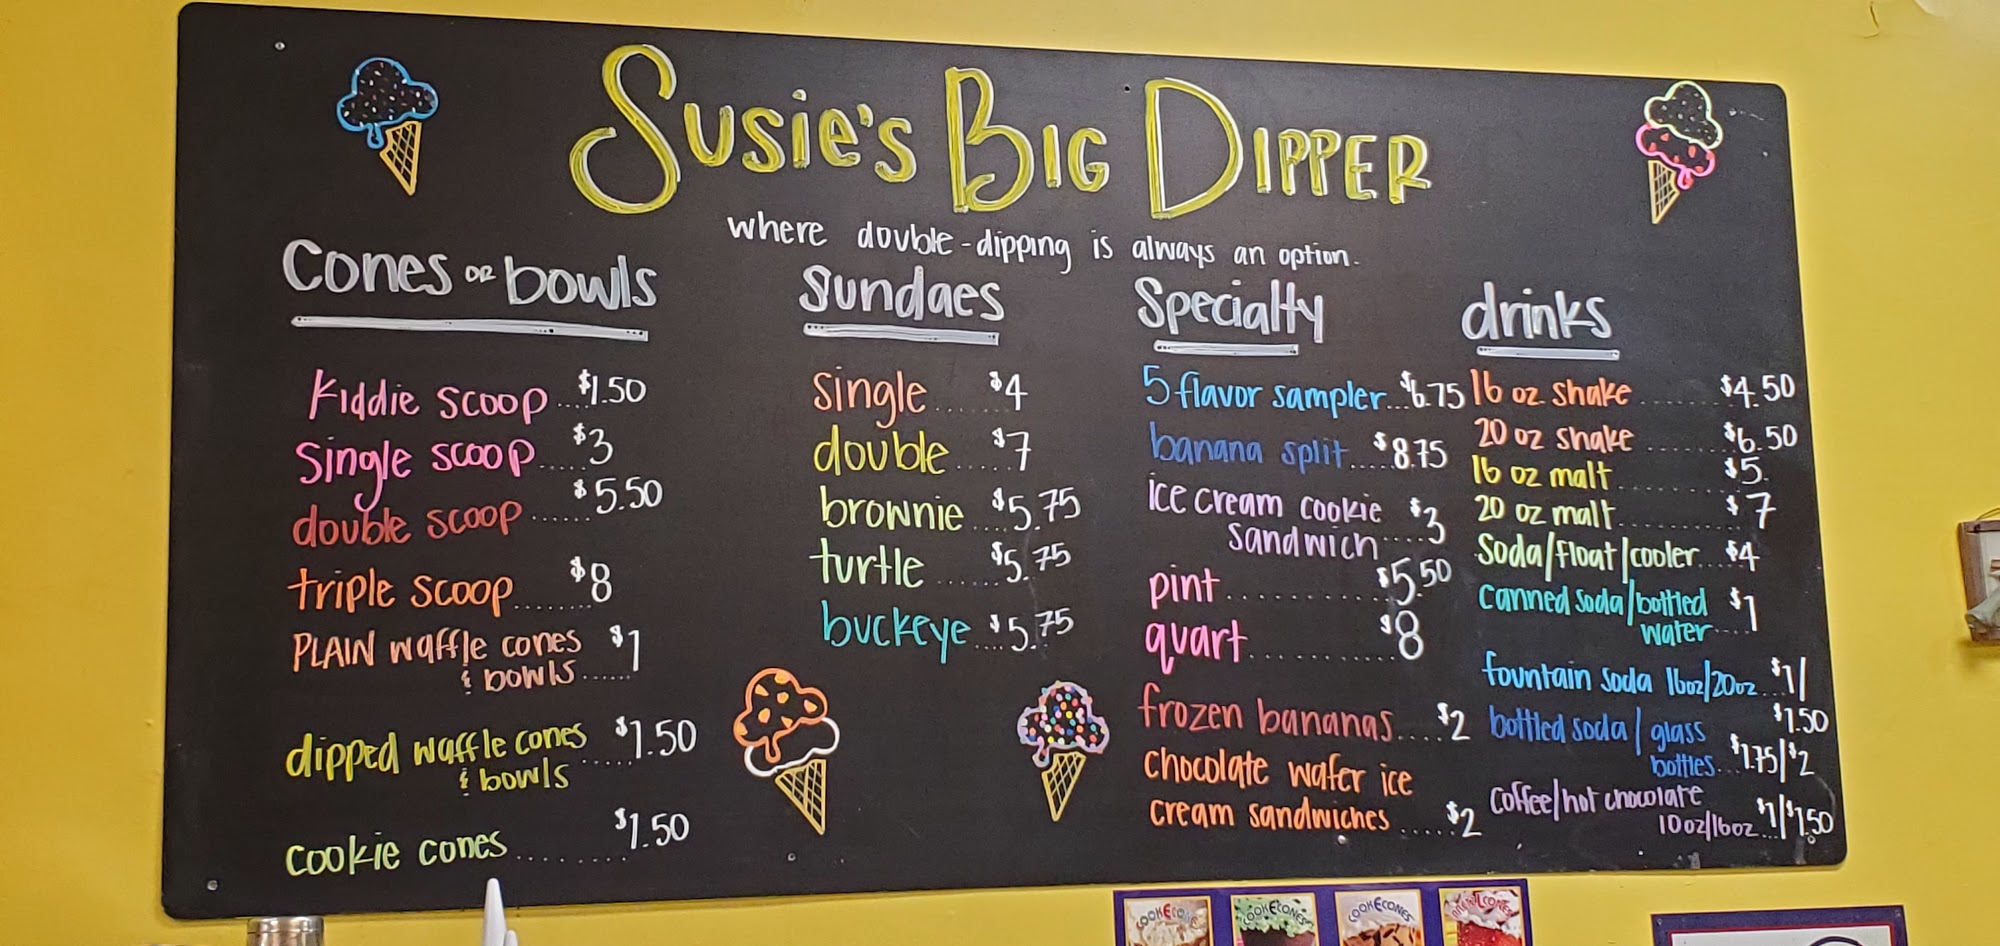 Susie's Big Dipper
where double-dipping is always an option.
Cones or bowls
kiddie scoop....$1.50
single scoop....$3
double scoop......$5.50
triple scoop.......$8
PLAIN waffle cones $1
& bowls......
dipped waffle cones $1.50
& bowls
cookie cones.........$1.50
Sundaes
single......$4
double....$7
brownie..$5.75
turtle......$5.75
buckeye....$5.75
Specialty
5 flavor sampler...$6.75
banana split....$8.75
ice cream cookie $3
sandwich....
pint............$5.50
quart..........$8
frozen bananas....$2
chocolate wafer ice
cream sandwiches....$2
drinks
16 oz shake........$4.50
20 oz shake........$6.50
16 oz malt..........$5.
20 oz malt..........$7
Soda/float/cooler...$4
canned soda/bottled $1
water....
fountain soda 16oz/20oz..$1/
$1.50
bottled soda/glass
bottles...$1.75/$2
coffee/hot chocolate
10oz/16oz...$1/$1.50
COOKECONES
COOKECONES